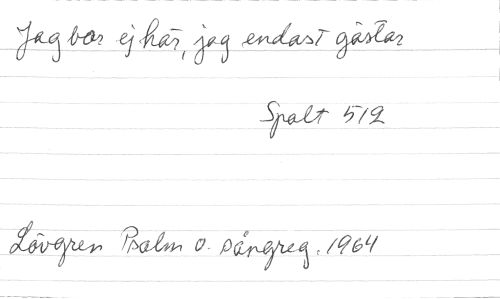 Jag bor ej här, jag endast gästar
Spalt 512
Lövgren Psalm o. sångreg. 1964